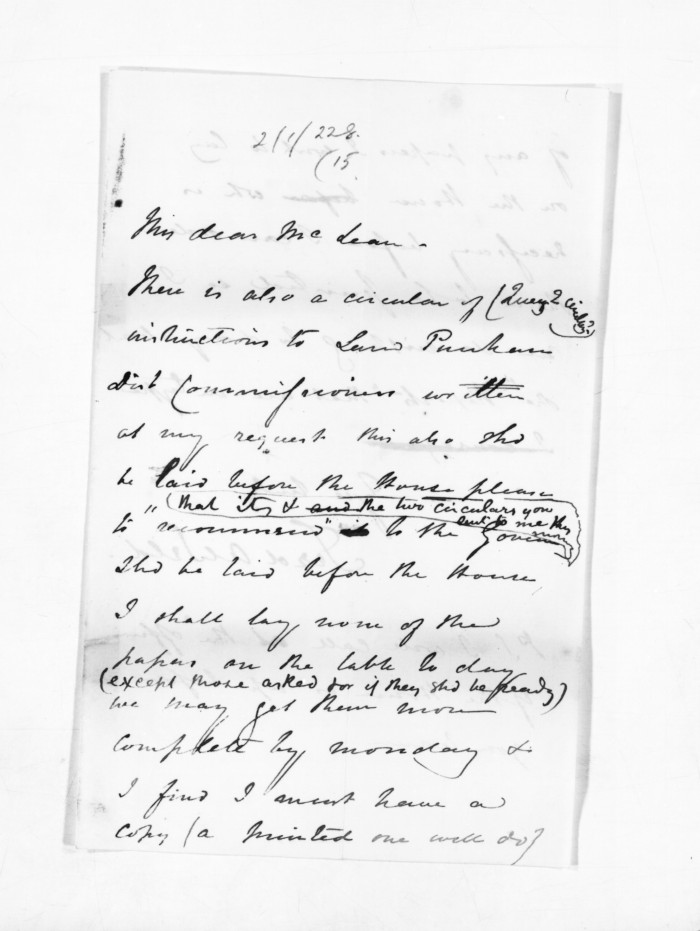 2/1/228.
(15.
My dear McLean.
There is also a circular of (Query 2 circulars)
instructions to Land Purchase
Dist Commissioners written
at my request this also shd
be laid before the House please
"(that its & and the two circulars you
sent to me this
to recommend" to the Governor
shd be laid before the House
I shall lay none of the
papers on the table to day
(except those asked for if they shd be ready)
we may get them more
complete by monday &
I find I must have a
copy (a printed one will do)